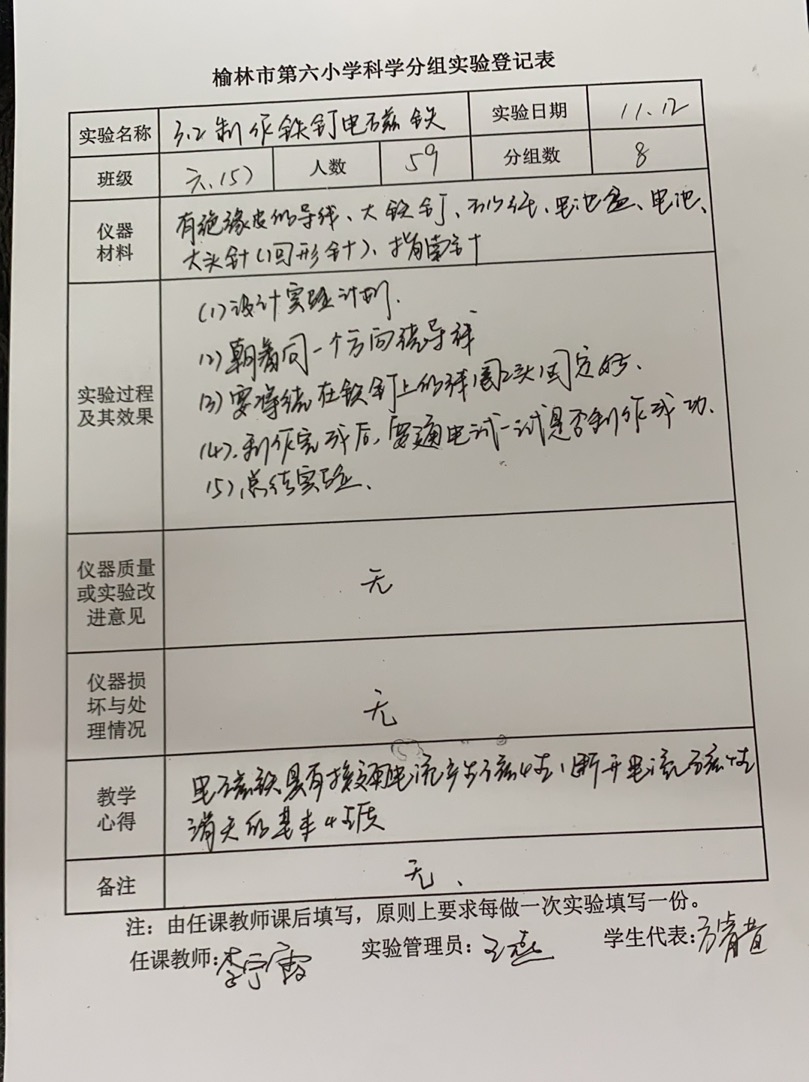 榆林市第六小学科学分组实验登记表
实验名称 3.2.制作铁钉电磁铁 实验日期 11.12
班级 六.(5) 人数 59 分组数 8
仪器材料 有绝缘皮的导线、大铁钉、砂纸、电池盒、电池、
大头针(回形针)、指南针
实验过程及其效果
(1)设计实验计划.
(2)朝着同一个方向绕导线
(3)要将绕在铁钉上的线圈2头固定好.
(4).制作完成后,要通电试一试是否制作成功.
(5)总结实验、
仪器质量或实验改进意见 无
仪器损坏与处理情况 无
教学心得 电磁铁具有接通电流产生磁性,断开电流磁性
消失的基本性质
备注 无、
注:由任课教师课后填写,原则上要求每做一次实验填写一份。
任课教师:李宁霞 实验管理员:王燕 学生代表: